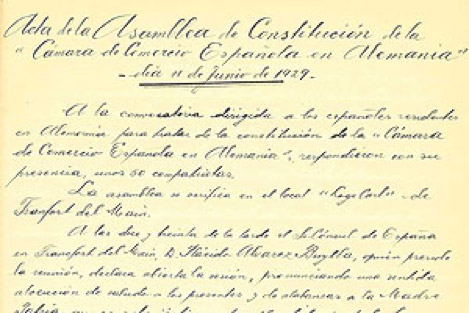 Acta de la Asamblea de Constitución de la
"Cámara de Comercio Española en Alemania"
- día 11 de Junio de 1929 -
A la convocatoria dirigida a los españoles residentes
en Alemania para tratar de la constitución de la "Cámara
de Comercio Española en Alemania", respondieron con su
presencia, unos 60 compatriotas.
La asamblea se verifica en el local "Loge Carl" - de
Francfort del Main.
A las doce y treinta de la tarde el Sr Cónsul de España
en Francfort del Main, D. Plácido Alvarez Buylla, quien preside
la reunión, declara abierta la sesión, pronunciando una sentida
alocución de saludo a los presentes y de alabanzas a la Madre
Patria